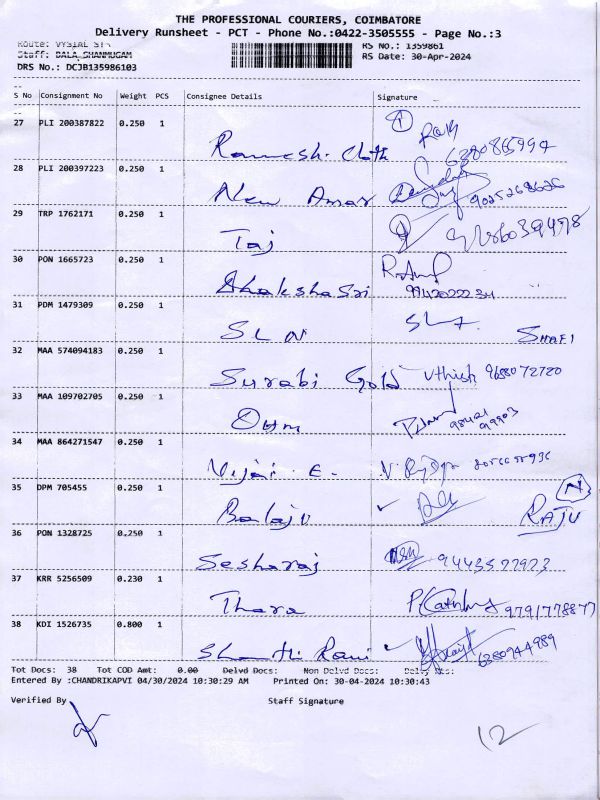 THE PROFESSIONAL COURIERS, COIMBATORE
Delivery Runsheet - PCT - Phone No.:0422-3505555 - Page No.:3
Route: VYSIAL ST
RS No.: 1359861
Staff: BALA SHANMUGAM
RS Date: 30-Apr-2024
DRS No.: DCJB135986103
S No Consignment No Weight PCS Consignee Details Signature
27 PLI 200387822 0.250 1 Ramesh. Cloth
28 PLI 200397223 0.250 1 New Amar 9025268626
29 TRP 1762171 0.250 1 Taj
30 PON 1665723 0.250 1
31 PDM 1479309 0.250 1 SLN SHAFI
32 MAA 574094183 0.250 1 Surabi Gold Vthish 9688072720
33 MAA 109702705 0.250 1 Ohm
34 MAA 864271547 0.250 1 Vijai. E.
35 DPM 705455 0.250 1 Balaji N RAJU
36 PON 1328725 0.250 1 Sesharaj
37 KRR 5256509 0.230 1 Thara
38 KDI 1526735 0.800 1 Shanthi Rani 6380944989
Tot Docs: 38 Tot COD Amt: 0.00 Delvd Docs: Non Delvd Docs: Delvy Hts:
Entered By :CHANDRIKAPVI 04/30/2024 10:30:29 AM Printed On: 30-04-2024 10:30:43
Verified By Staff Signature
12